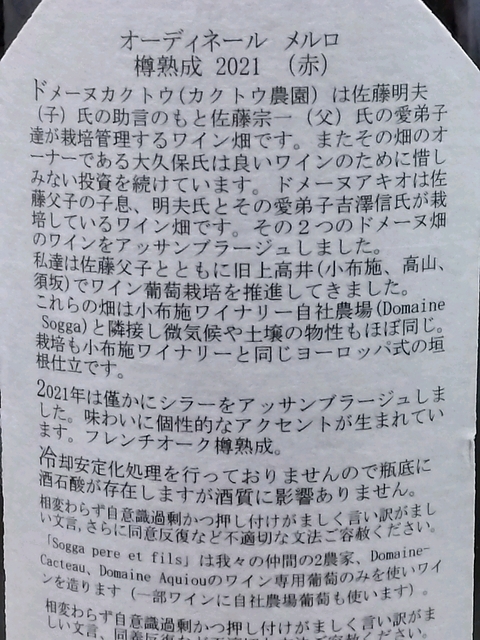 オーディネール メルロ
樽熟成 2021 (赤)
ドメーヌカクトウ(カクトウ農園) は佐藤明夫
(子) 氏の助言のもと佐藤宗一 (父) 氏の愛弟子
達が栽培管理するワイン畑です。またその畑のオ
ーナーである大久保氏は良いワインのために惜し
みない投資を続けています。ドメーヌアキオは佐
藤父子の子息、明夫氏とその愛弟子吉澤信氏が栽
培しているワイン畑です。その2つのドメーヌ畑
のワインをアッサンブラージュしました。
私達は佐藤父子とともに旧上高井(小布施、高山、
須坂)でワイン葡萄栽培を推進してきました。
これらの畑は小布施ワイナリー自社農場(Domaine
Sogga)と隣接し微気候や土壌の物性もほぼ同じ。
栽培も小布施ワイナリーと同じヨーロッパ式の垣
根仕立です。
2021年は僅かにシラーをアッサンブラージュしま
した。味わいに個性的なアクセントが生まれてい
ます。フレンチオーク樽熟成。
冷却安定化処理を行っておりませんので瓶底に
酒石酸が存在しますが酒質に影響ありません。
相変わらず自意識過剰かつ押し付けがましく言い訳がまし
い文言,さらに同意反復など不適切な文法ご容赦ください。
「Sogga pere et fils」は我々の仲間の2農家、Domaine-
Cacteau, Domaine Aquiouのワイン専用葡萄のみを使いワイ
ンを造ります (一部ワインに自社農場葡萄も使います) 。
相変わらず自意識過剰かつ押し付けがましく言い訳がま
しい文言、同意反復など不適切な文法ご容赦ください。